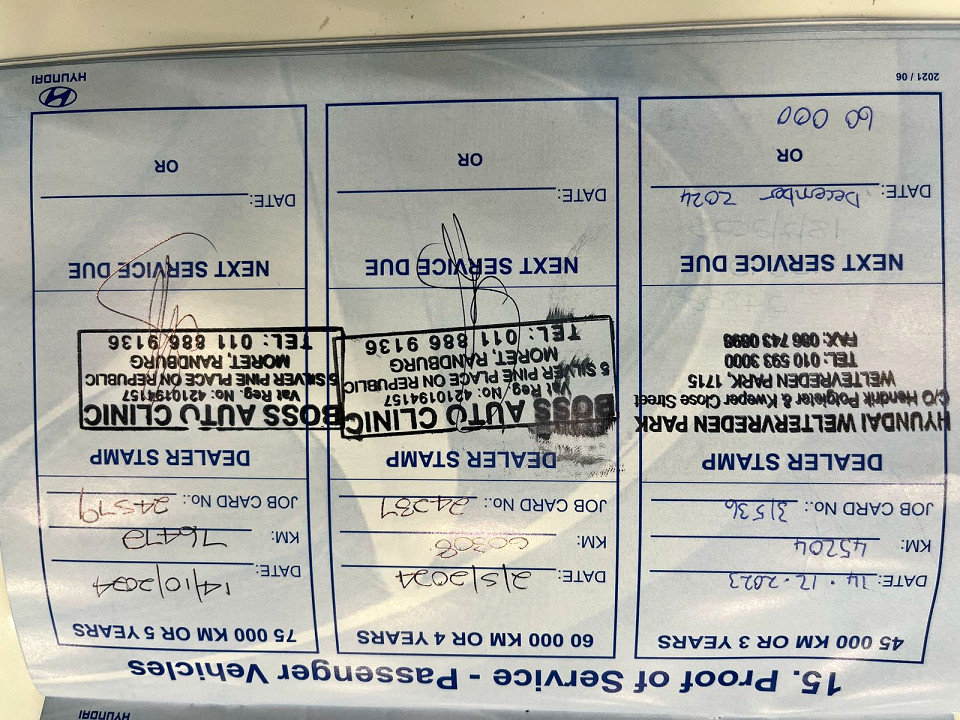 15. Proof of Service - Passenger Vehicles
45 000 KM OR 3 YEARS
DATE: 14.12.2023
KM: 45204
JOB CARD No.: 31536
DEALER STAMP
HYUNDAI WELTEVREDEN PARK
C/O Hendrik Potgieter & Kweper Close Street
WELTEVREDEN PARK, 1715
TEL: 010 593 3000
FAX: 086 743 0898
NEXT SERVICE DUE
DATE: December 2024
OR
60 000
60 000 KM OR 4 YEARS
DATE: 2/5/2024
KM: 60308
JOB CARD No.: 24237
DEALER STAMP
BOSS AUTO CLINIC
Vat Reg. No: 4210194157
5 SILVER PINE PLACE ON REPUBLIC
MORET, RANDBURG
TEL: 011 886 9136
NEXT SERVICE DUE
DATE:
OR
75 000 KM OR 5 YEARS
DATE: 14/10/2024
KM: 76479
JOB CARD No.: 24579
DEALER STAMP
BOSS AUTO CLINIC
Vat Reg. No: 4210194157
5 SILVER PINE PLACE ON REPUBLIC
MORET, RANDBURG
TEL: 011 886 9136
NEXT SERVICE DUE
DATE:
OR
2021 / 06
HYUNDAI
HYUNDAI